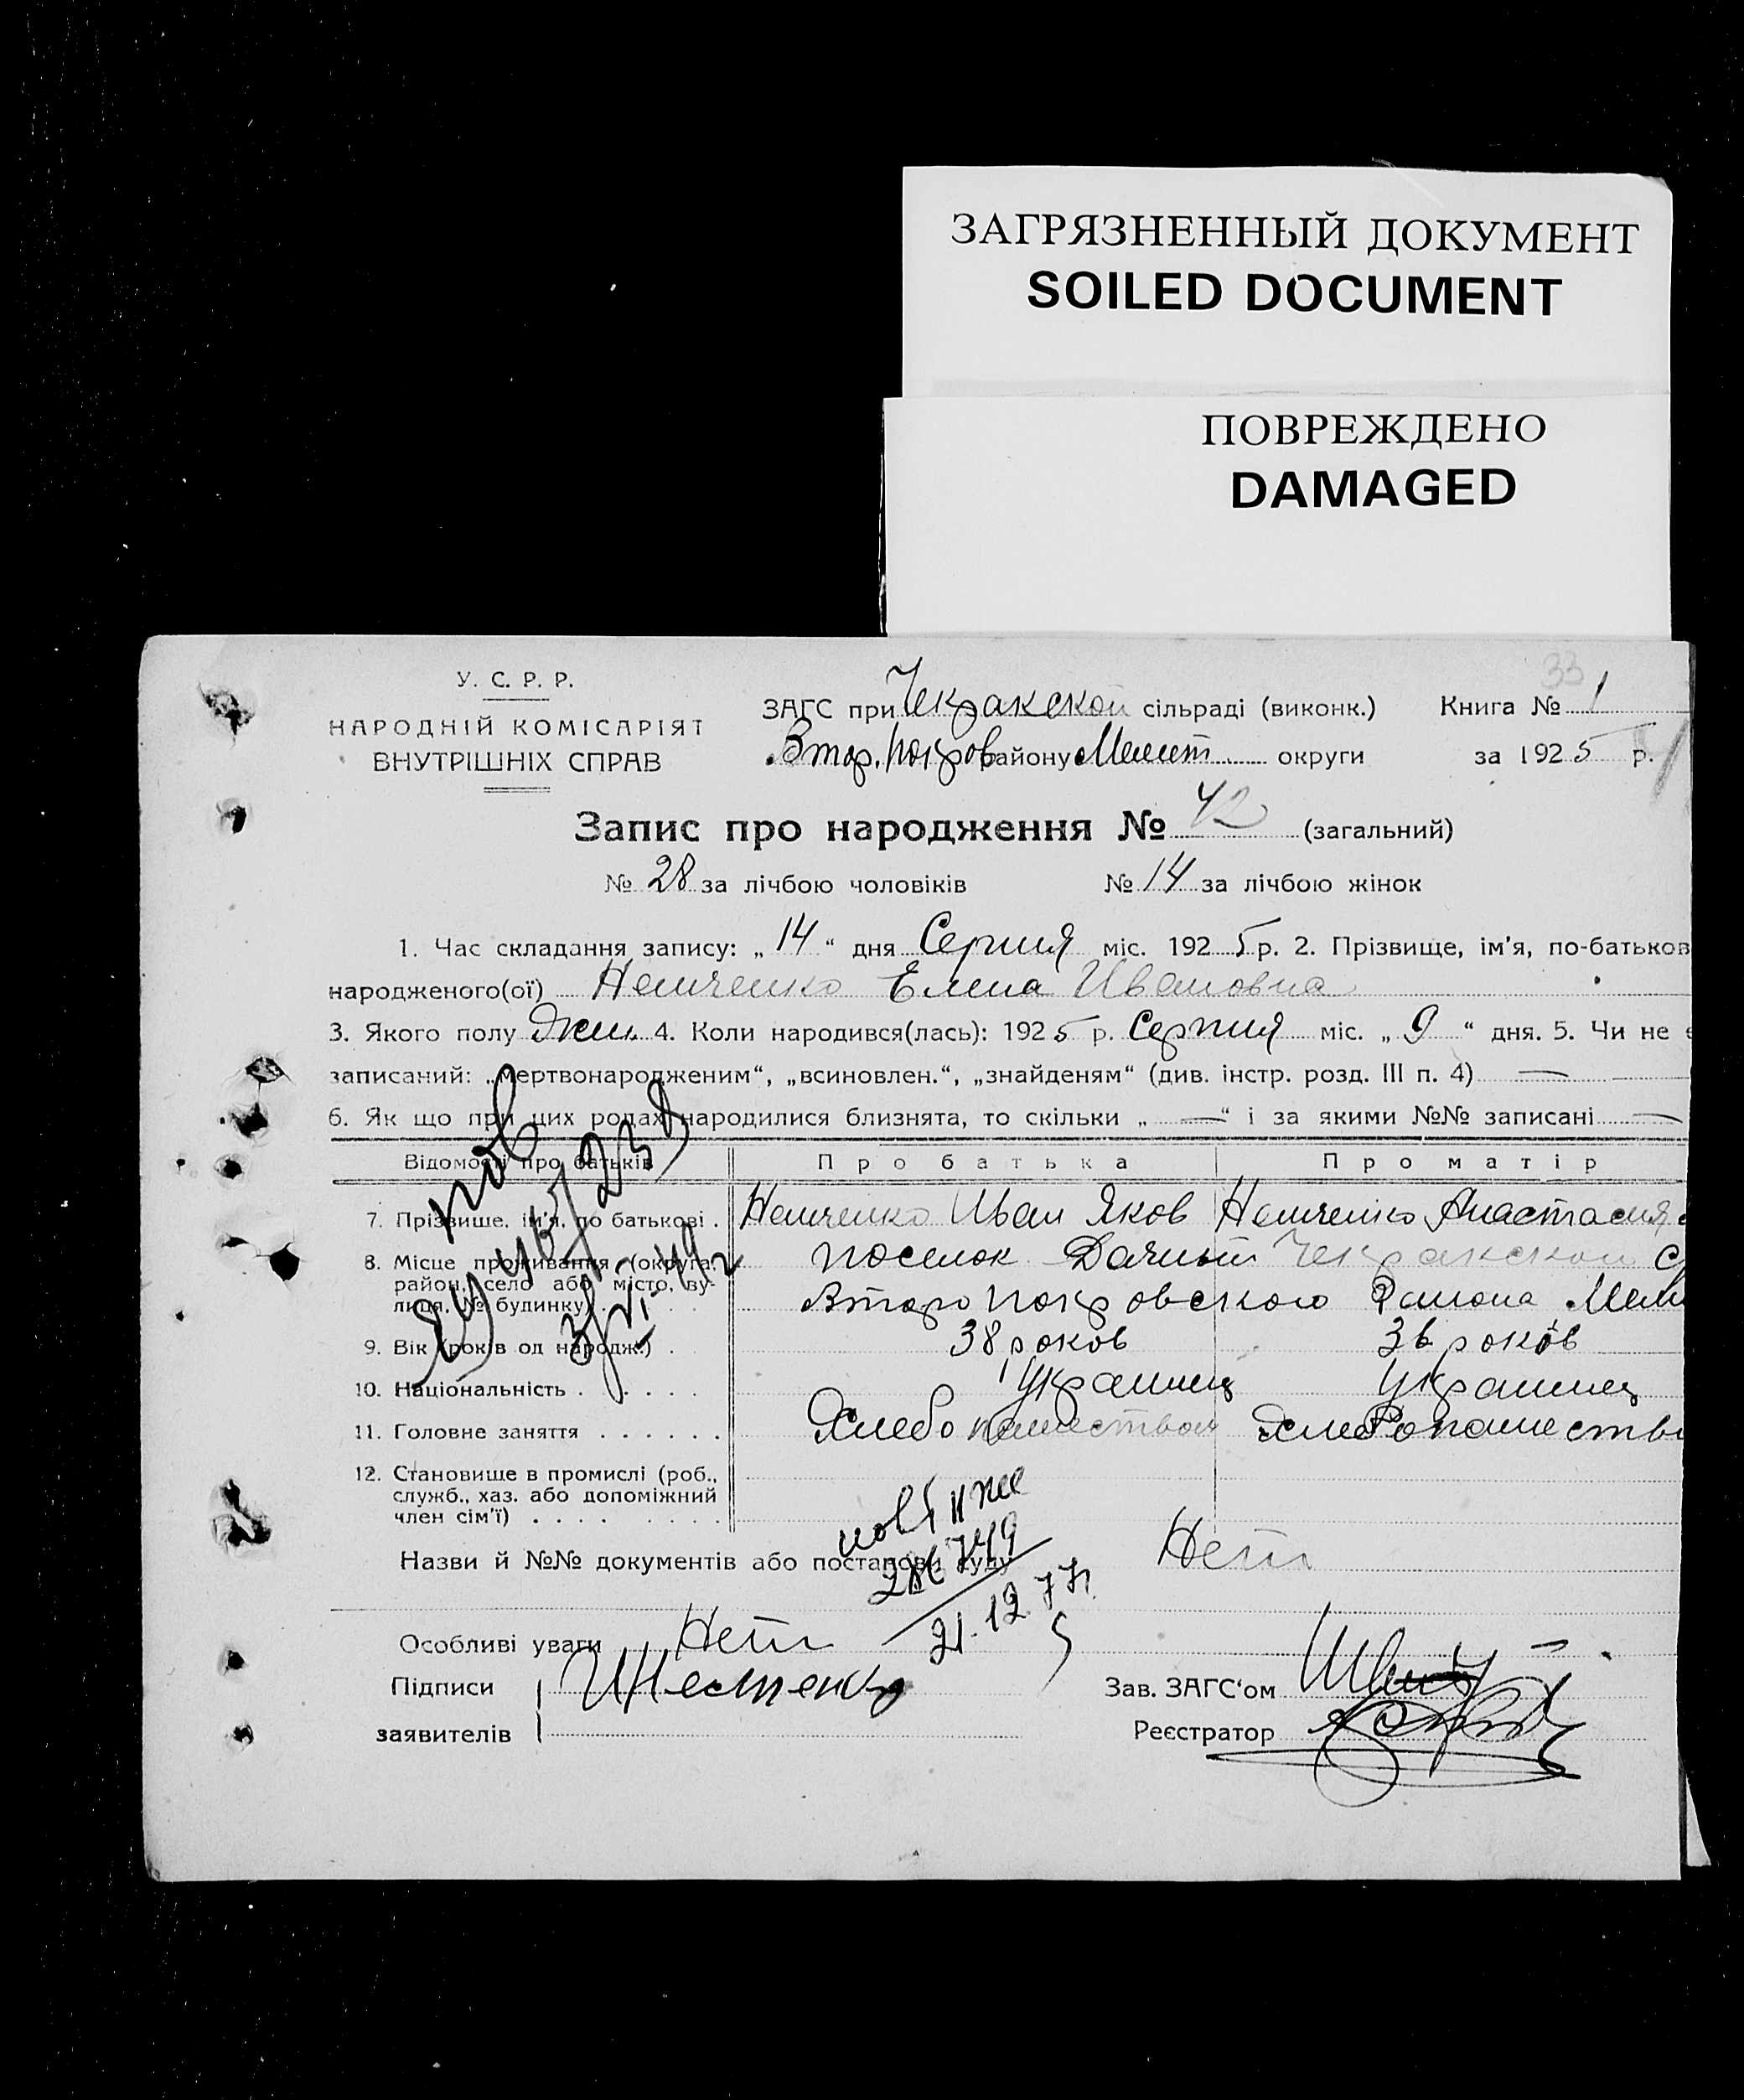 ЗАГРЯЗНЕННЫЙ ДОКУМЕНТ
SOILED DOCUMENT
ПОВРЕЖДЕНО
DAMAGED
33
У. С. Р. Р.
НАРОДНІЙ КОМІСАРІЯТ
ВНУТРІШНІХ СПРАВ
ЗАГС при Чекракской сільраді (виконк.) Книга № 1
Втор. Покров району Мелит округи за 1925 р.
Запис про народження № 42 (загальний)
№ 28 за лічбою чоловіків № 14 за лічбою жінок
1. Час складання запису: „14“ дня Серпня міс. 1925 р. 2. Прізвище, ім'я, по-батьков
народженого(ої) Немченко Елена Ивановна
3. Якого полу Жен. 4. Коли народився(лась): 1925 р. Серпня міс. „9“ дня. 5. Чи не є
записаний: „мертвонародженим“, „всиновлен.“, „знайденям“ (див. інстр. розд. III п. 4) —
6. Як що при цих родах народилися близнята, то скільки „—“ і за якими №№ записані —
Відомості про батьків Про батька Про матір
7. Прізвище, ім'я, по батькові . Немченко Иван Яков Немченко Анастасия
8. Місце проживання (округа, район, село або місто, ву-
лиця, № будинку)
поселок Дачный Чекракской С
Второпокровского Района Мели
9. Вік (років од народж.) . 38 роков 36 роков
10. Національність . . . . . . Украинец Украинец
11. Головне заняття . . . . . . Хлебопашество Хлебопашество
12. Становище в промислі (роб.,
служб., хаз. або допоміжний
член сім'ї) . . . .
Назви й №№ документів або постанови суду Нет
21.12.77г.
Особливі уваги Нет
Підписи Шестенко Зав. ЗАГС'ом
заявителів Реєстратор